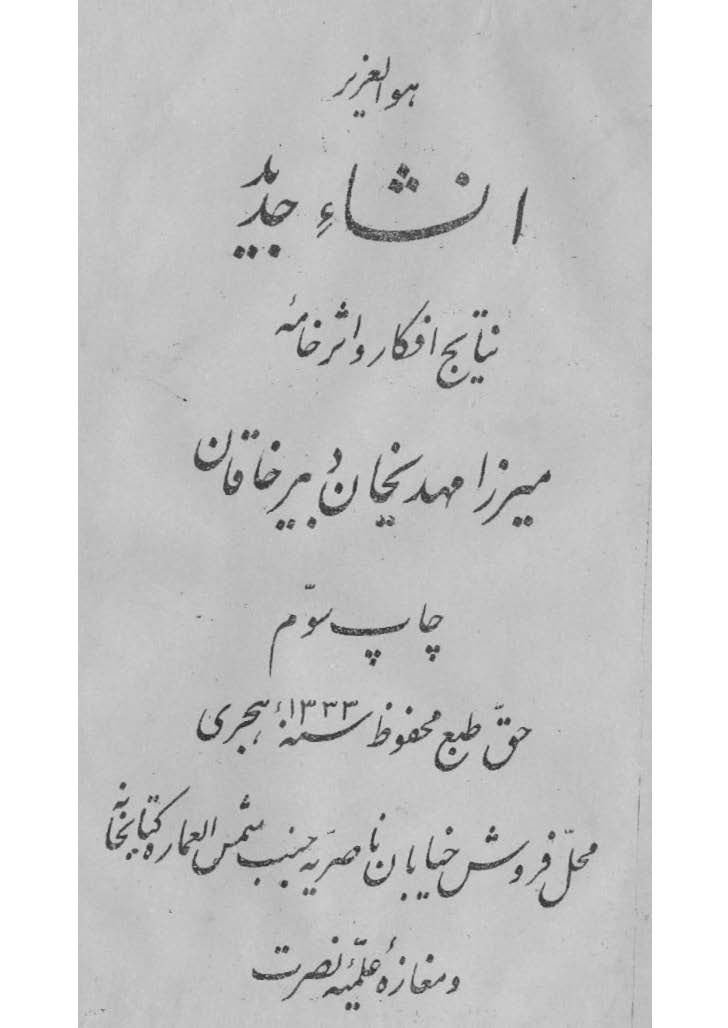 هوالعزیز
انشاءِ جدید
نتایج افکار و اثر خامهٔ
میرزا مهدیخان دبیر خاقان
چاپ سوّم
حقّ طبع محفوظ سنهٔ ۱۳۳۳ هجری
محلّ فروش خیابان ناصریّه جنب شمس العماره کتابخانه
و مغازهٔ علمّیهٔ نصرت